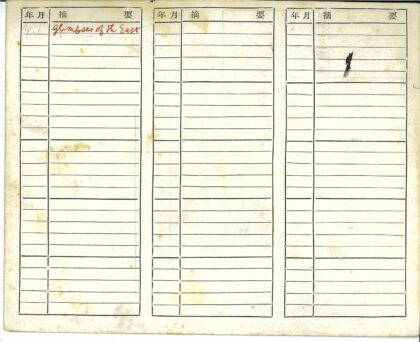 年月 摘要 年月 摘要 年月 摘要
Glimpses of the East